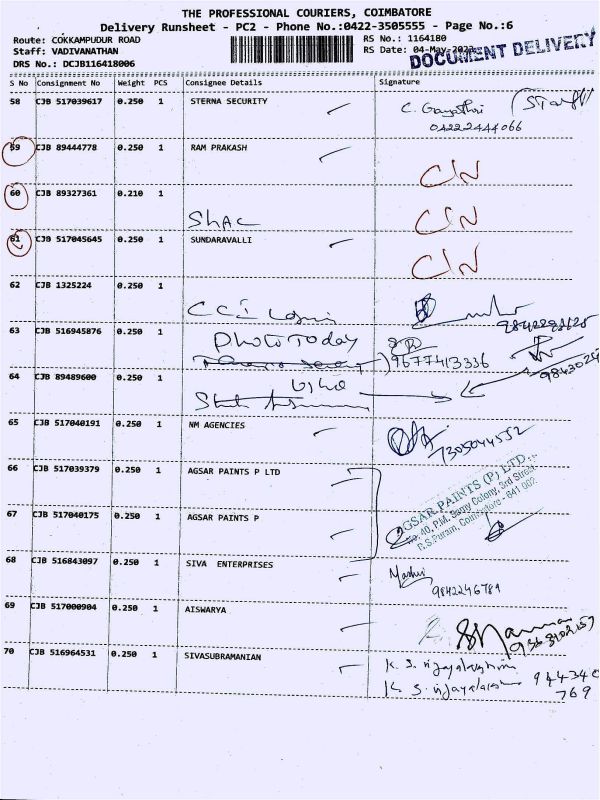 THE PROFESSIONAL COURIERS, COIMBATORE
Delivery Runsheet - PC2 - Phone No.:0422-3505555 - Page No.:6
Route: COKKAMPUDUR ROAD RS No.: 1164180
Staff: VADIVANATHAN RS Date: 04-May-2023
DOCUMENT DELIVERY
DRS No.: DCJB116418006
S No Consignment No Weight PCS Consignee Details Signature
58 CJB 517039617 0.250 1 STERNA SECURITY C. Gayathri Staff
04222444066
59 CJB 89444778 0.250 1 RAM PRAKASH C/N
60 CJB 89327361 0.210 1 C/N
SHAC
61 CJB 517045645 0.250 1 SUNDARAVALLI C/N
62 CJB 1325224 0.250 1
CCI
63 CJB 516945876 0.250 1 PHOTO TODAY
9677413336
64 CJB 89489600 0.250 1
65 CJB 517040191 0.250 1 NM AGENCIES 7305044552
66 CJB 517039379 0.250 1 AGSAR PAINTS P LTD
AGSAR PAINTS (P) LTD.,
No. 40, P.M. Samy Colony, 3rd Street
R.S.Puram, Coimbatore - 641 002
67 CJB 517040175 0.250 1 AGSAR PAINTS P
68 CJB 516843097 0.250 1 SIVA ENTERPRISES
9842246789
69 CJB 517000904 0.250 1 AISWARYA
70 CJB 516964531 0.250 1 SIVASUBRAMANIAN K. S. Vijayalakshmi
K. S. Vijayalakshmi 944340
769